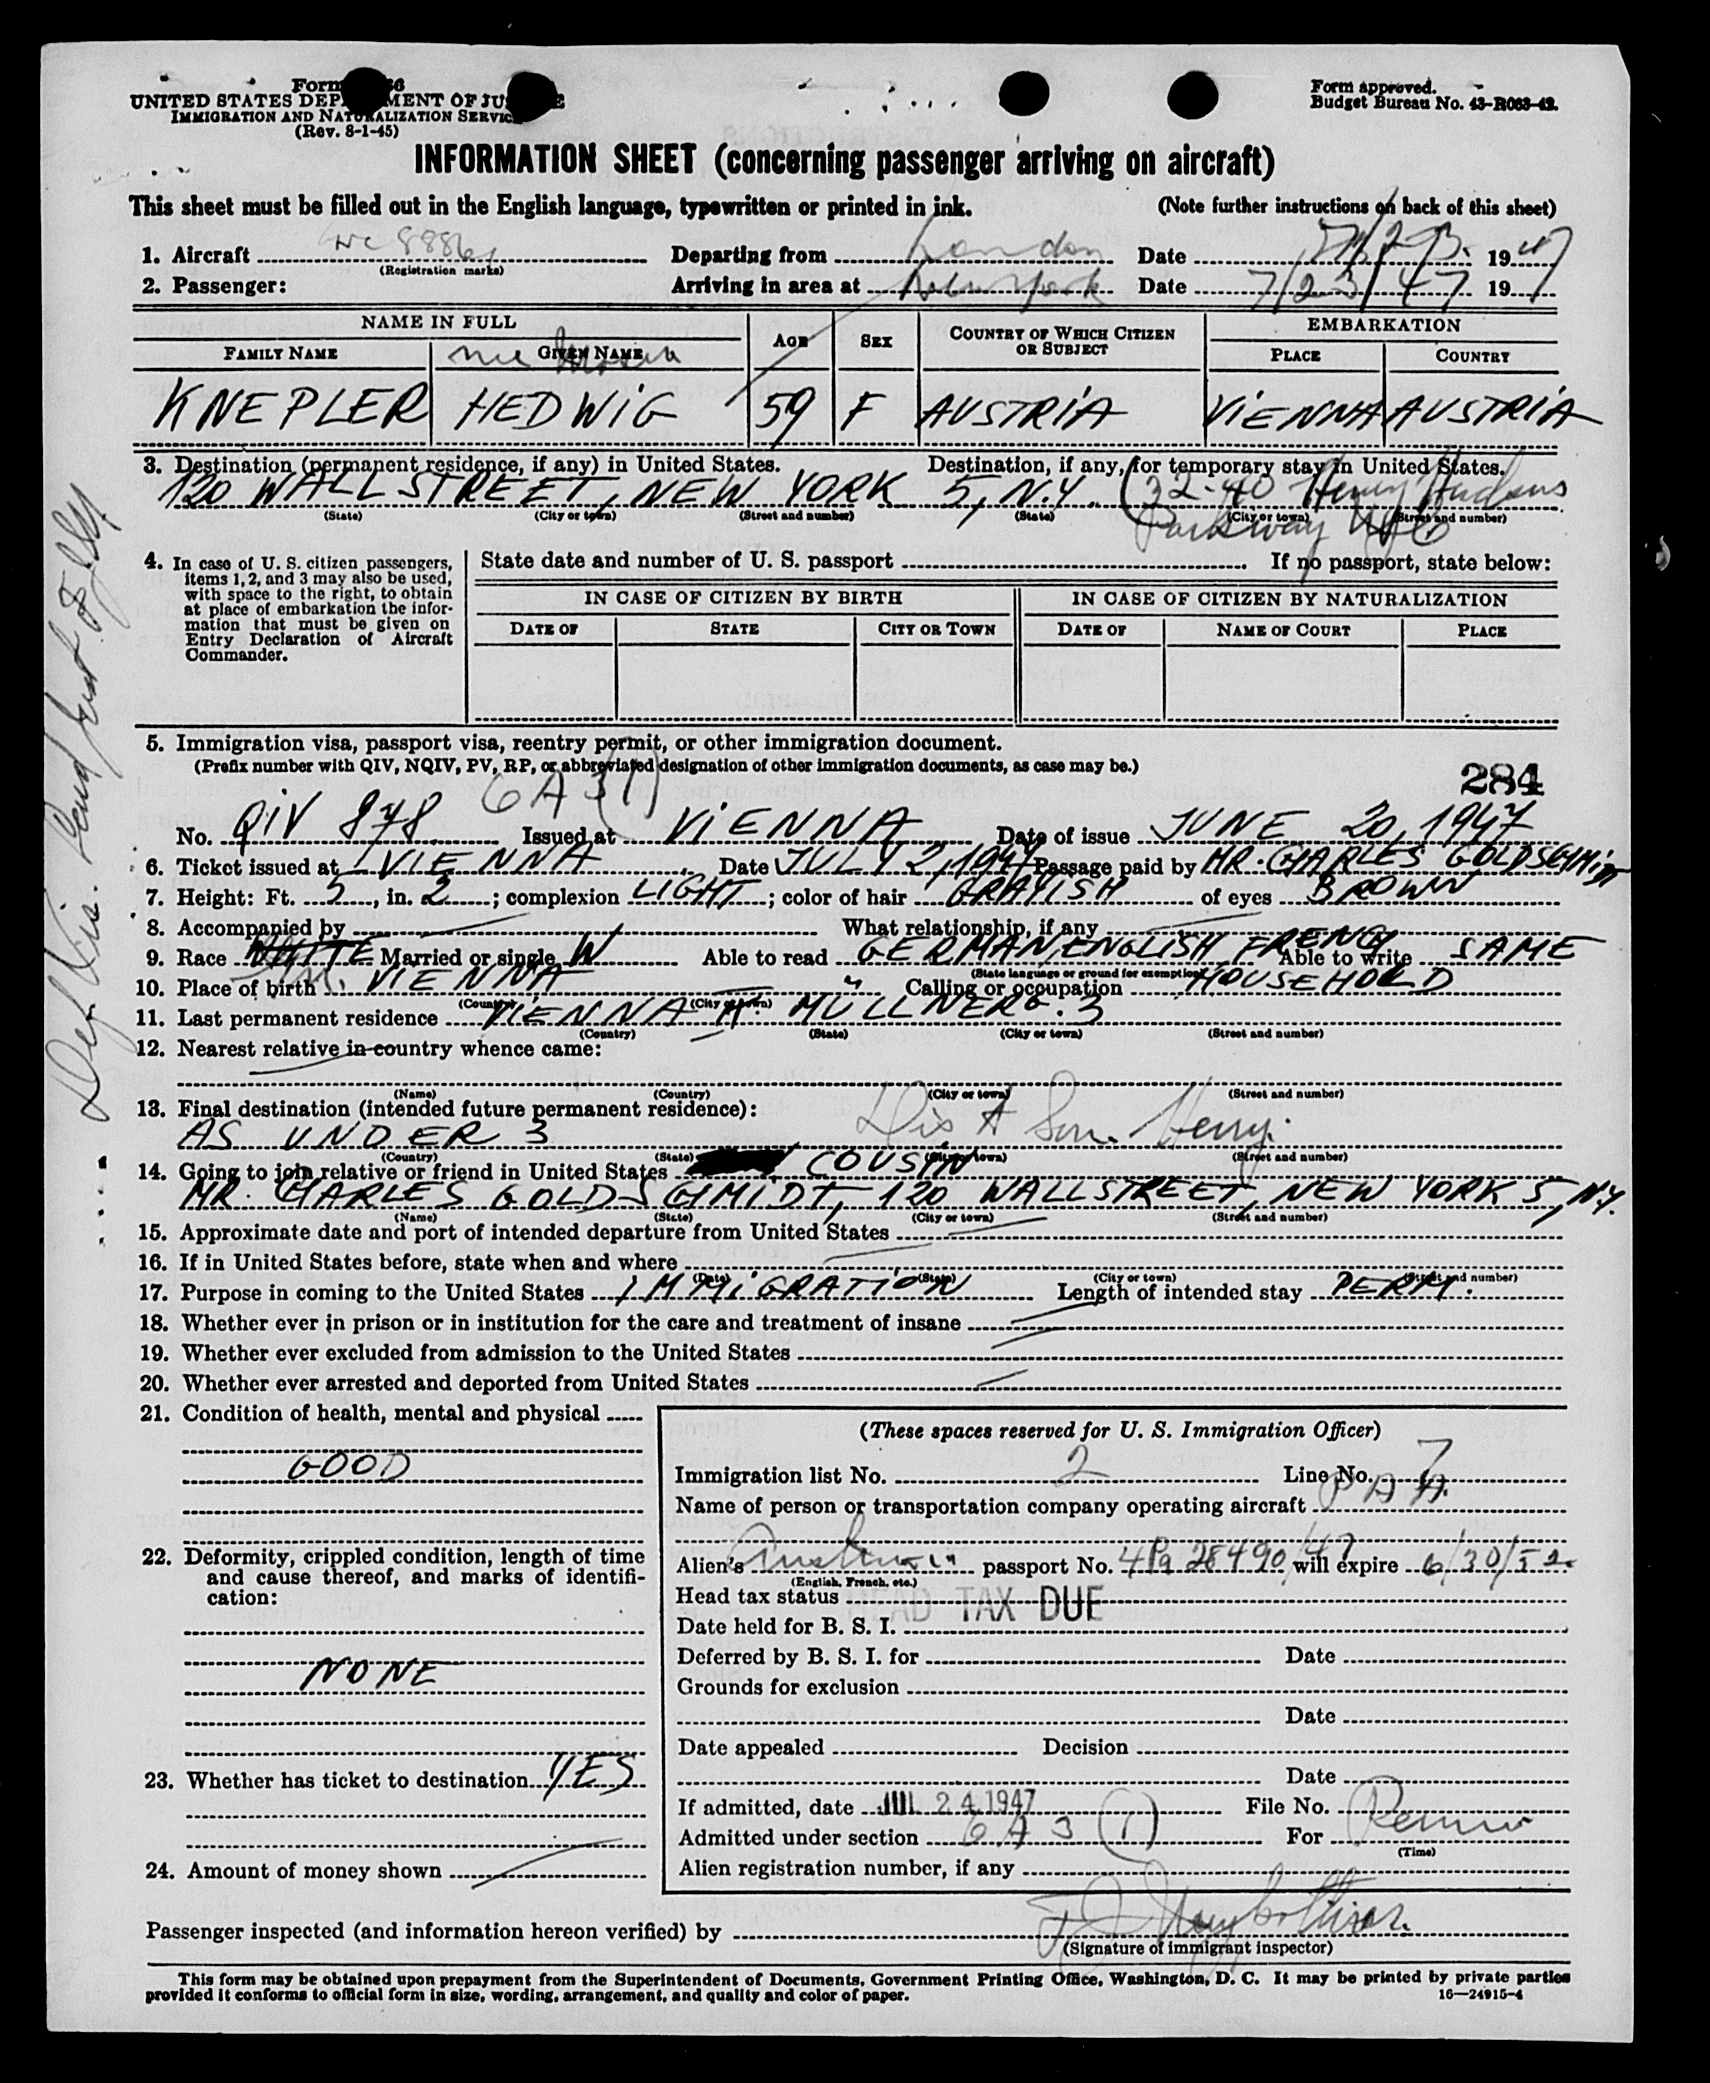 UNITED STATES DEP MENT OF JU E
IMMIGRATION AND NATURALIZATION SERVIC
(Rev. 8-1-45)
Form approved.
Budget Bureau No. 43-R063-42.
INFORMATION SHEET (concerning passenger arriving on aircraft)
This sheet must be filled out in the English language, typewritten or printed in ink. (Note further instructions on back of this sheet)
1. Aircraft (Registration marks) Departing from London Date 1947
2. Passenger: Arriving in area at New York Date 7/23/47 19
NAME IN FULL AGE SEX COUNTRY OF WHICH CITIZEN OR SUBJECT EMBARKATION
FAMILY NAME GIVEN NAME PLACE COUNTRY
KNEPLER HEDWIG 59 F AUSTRIA VIENNA AUSTRIA
3. Destination (permanent residence, if any) in United States. Destination, if any, for temporary stay in United States.
120 WALL STREET, NEW YORK 5, N.Y. (32-40 Henry Hudson
(State) (City or town) (Street and number) (State) (City or town) (Street and number)
Parkway NYC)
4. In case of U. S. citizen passengers, items 1, 2, and 3 may also be used, with space to the right, to obtain at place of embarkation the information that must be given on Entry Declaration of Aircraft Commander.
State date and number of U. S. passport If no passport, state below:
IN CASE OF CITIZEN BY BIRTH IN CASE OF CITIZEN BY NATURALIZATION
DATE OF STATE CITY OR TOWN DATE OF NAME OF COURT PLACE
5. Immigration visa, passport visa, reentry permit, or other immigration document.
(Prefix number with QIV, NQIV, PV, RP, or abbreviated designation of other immigration documents, as case may be.)
284
6A3(1)
No. QIV 878 Issued at VIENNA Date of issue JUNE 20, 1947
6. Ticket issued at VIENNA Date JULY 2, 1947 Passage paid by MR. CHARLES GOLDSCHMIDT
7. Height: Ft. 5, in. 2; complexion LIGHT; color of hair GRAYISH of eyes BROWN
8. Accompanied by What relationship, if any
9. Race WHITE Married or single W Able to read GERMAN, ENGLISH FRENCH Able to write SAME
(State language or ground for exemption)
10. Place of birth VIENNA Calling or occupation HOUSEHOLD
(Country) (City or town)
11. Last permanent residence VIENNA MÜLLNERG. 3
(Country) (State) (City or town) (Street and number)
12. Nearest relative in country whence came:
(Name) (Country) (City or town) (Street and number)
13. Final destination (intended future permanent residence):
AS UNDER 3 Son. Henry.
(Country) (State) (City or town) (Street and number)
14. Going to join relative or friend in United States COUSIN
MR. CHARLES GOLDSCHMIDT, 120 WALL STREET, NEW YORK 5, N.Y.
(Name) (State) (City or town) (Street and number)
15. Approximate date and port of intended departure from United States
16. If in United States before, state when and where
(Date) (State) (City or town) (Street and number)
17. Purpose in coming to the United States IMMIGRATION Length of intended stay PERM.
18. Whether ever in prison or in institution for the care and treatment of insane
19. Whether ever excluded from admission to the United States
20. Whether ever arrested and deported from United States
21. Condition of health, mental and physical
GOOD
22. Deformity, crippled condition, length of time and cause thereof, and marks of identification:
NONE
23. Whether has ticket to destination YES
24. Amount of money shown
(These spaces reserved for U. S. Immigration Officer)
Immigration list No. 2 Line No. 7
Name of person or transportation company operating aircraft PAA
Alien's passport No. will expire 6/30/52
(English, French, etc.)
Head tax status HEAD TAX DUE
Date held for B. S. I.
Deferred by B. S. I. for Date
Grounds for exclusion
Date
Date appealed Decision
Date
If admitted, date JUL 24 1947 File No.
Admitted under section 6A3(1) For
(Time)
Alien registration number, if any
Passenger inspected (and information hereon verified) by
(Signature of immigrant inspector)
This form may be obtained upon prepayment from the Superintendent of Documents, Government Printing Office, Washington, D. C. It may be printed by private parties
provided it conforms to official form in size, wording, arrangement, and quality and color of paper. 16—24915-4